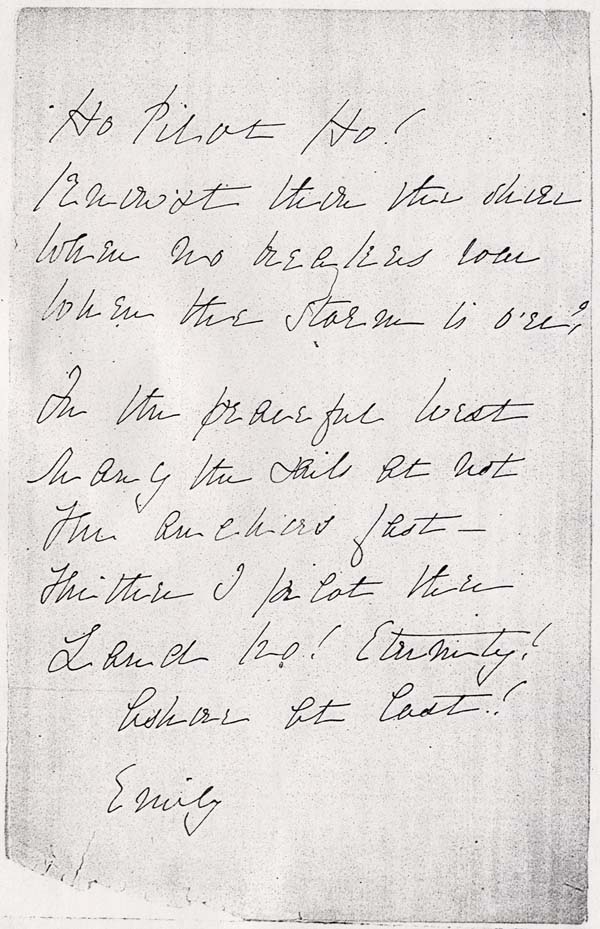 Ho Pilot Ho!
Knowest thou the shore
Where no breakers roar
Where the storm is o'er?
In the peaceful west
Many the sails at rest
The anchors fast –
Thither I pilot thee
Land ho! Eternity!
Ashore at last!
Emily